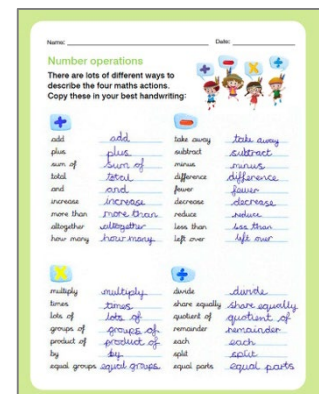 Name: Date:
Number operations
There are lots of different ways to
describe the four maths actions.
Copy these in your best handwriting:
+ - × ÷
+
add add
plus plus
sum of sum of
total total
and and
increase increase
more than more than
altogether altogether
how many how many
-
take away take away
subtract subtract
minus minus
difference difference
fewer fewer
decrease decrease
reduce reduce
less than less than
left over left over
×
multiply multiply
times times
lots of lots of
groups of groups of
product of product of
by by
equal groups equal groups
÷
divide divide
share equally share equally
quotient of quotient of
remainder remainder
each each
split split
equal parts equal parts